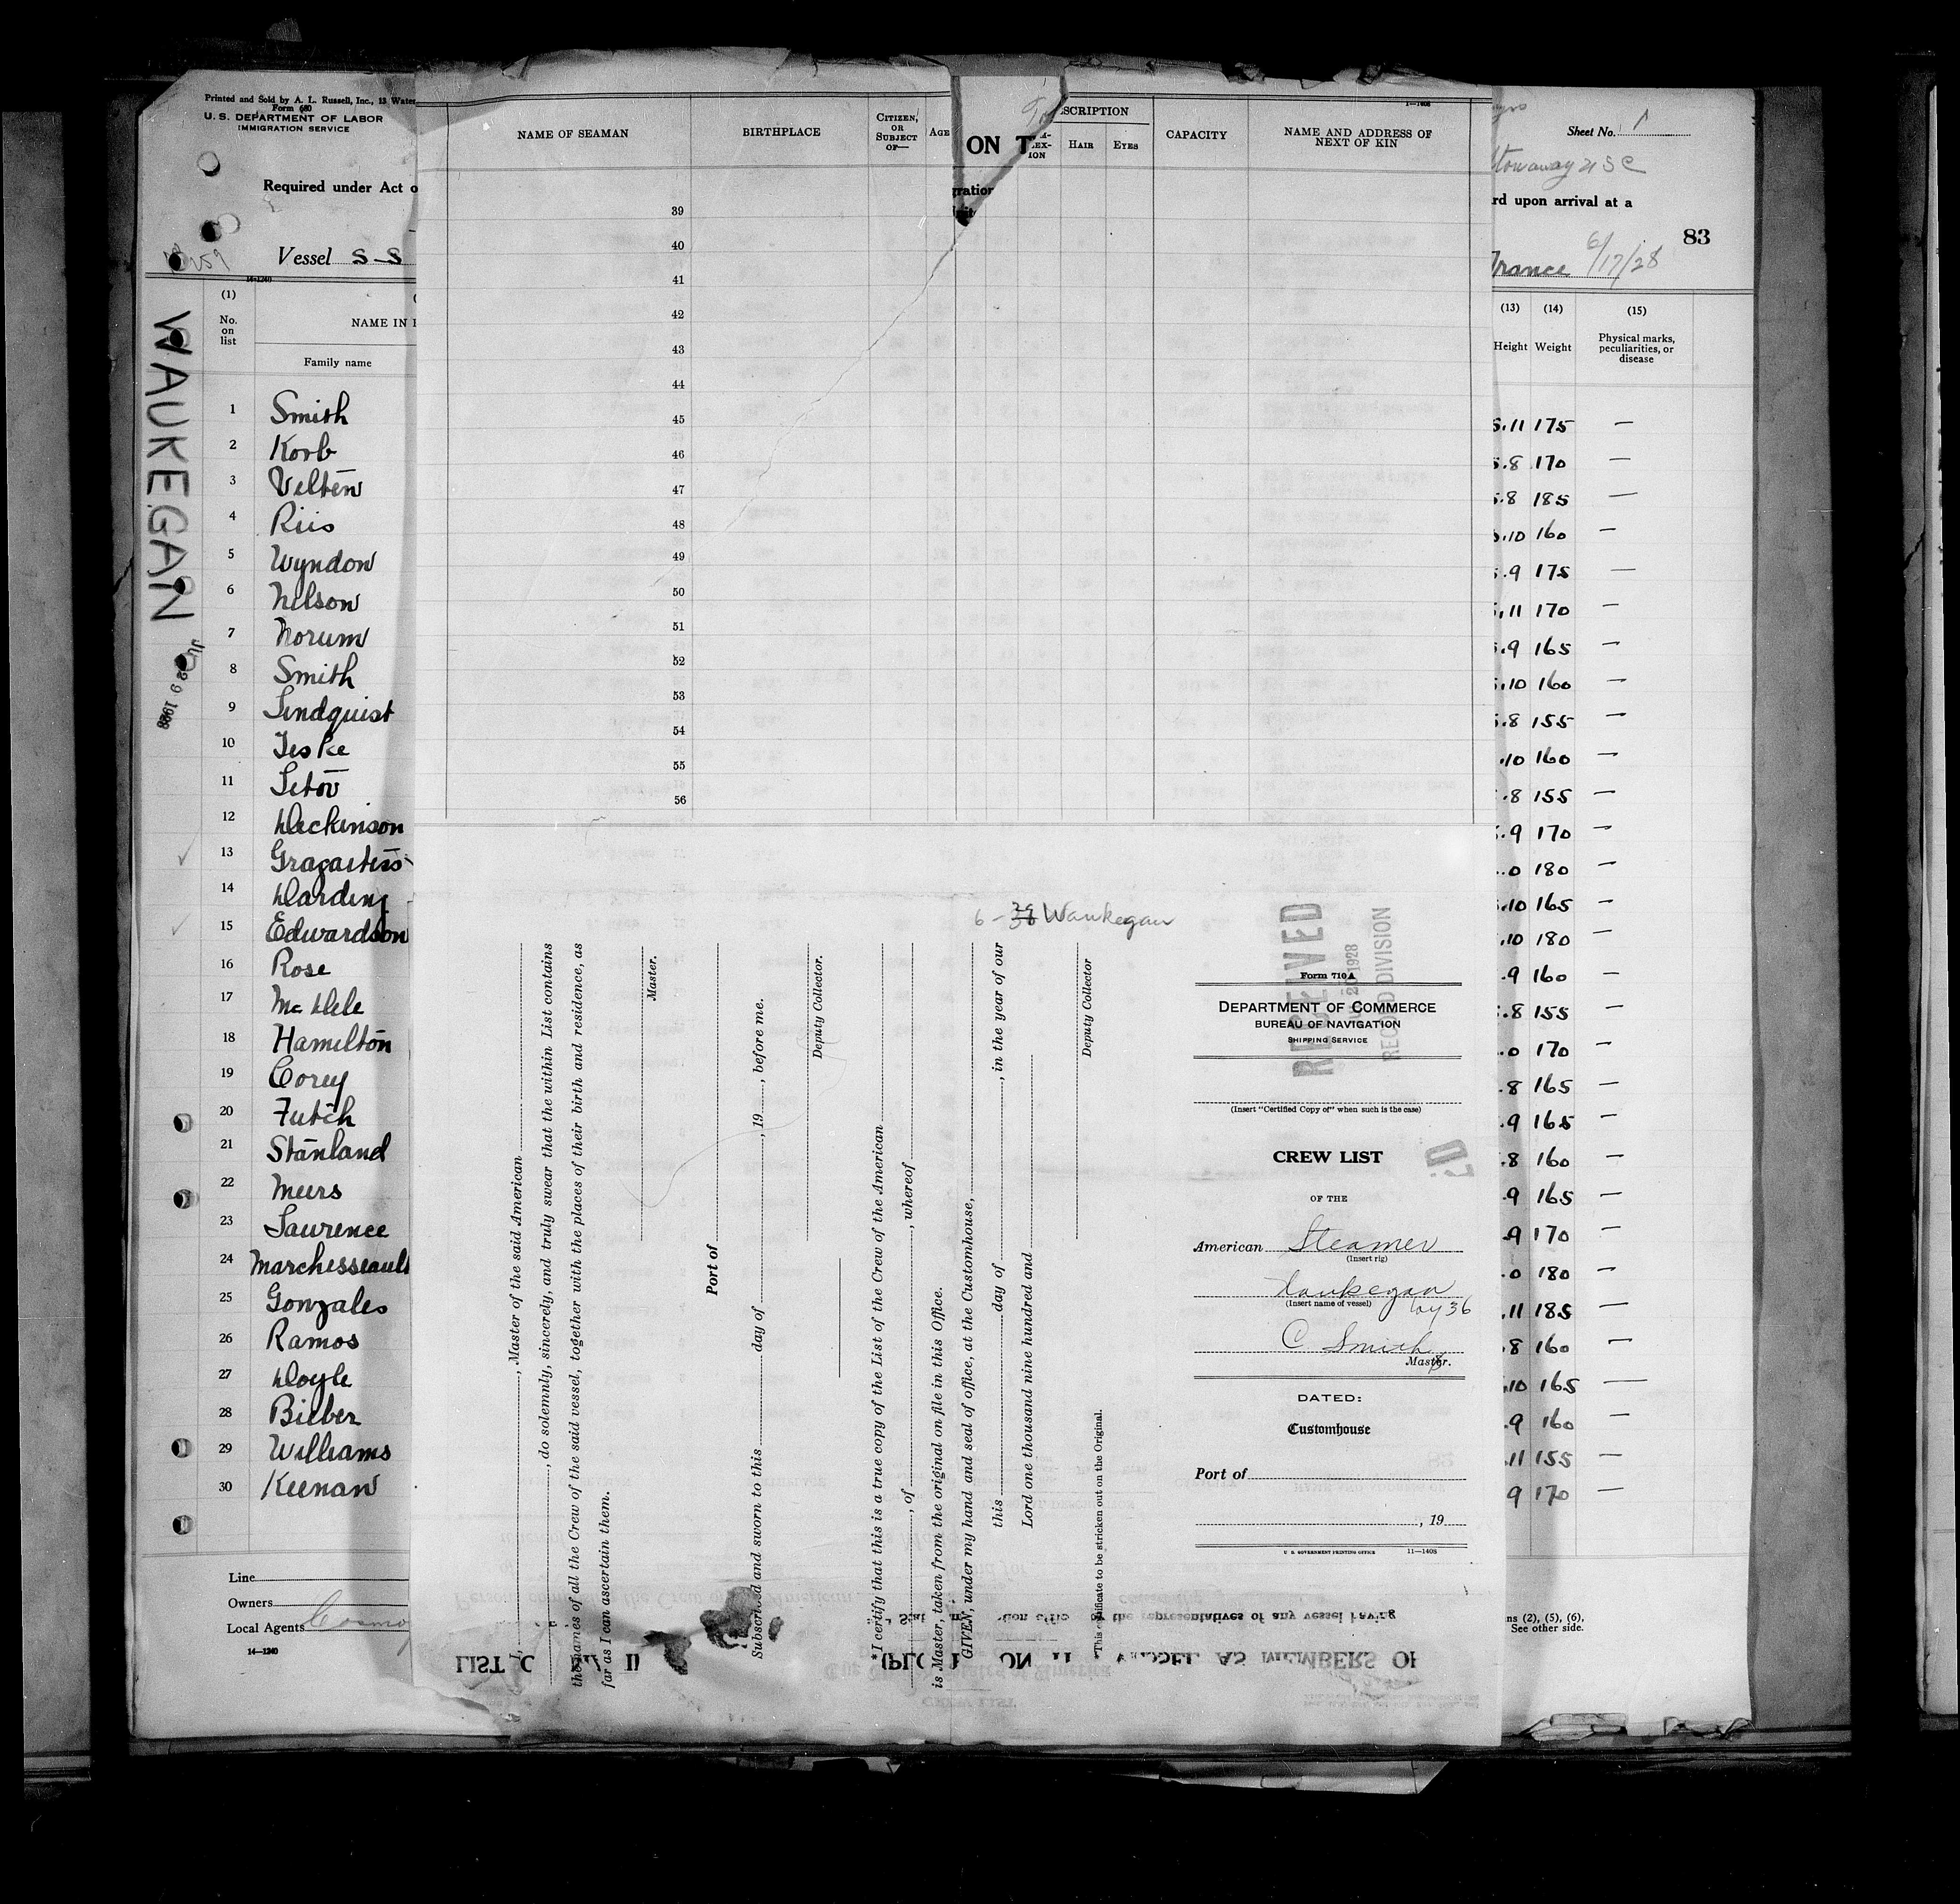 Printed and Sold by A. L. Russell, Inc., 13 Water
Form 680
U. S. DEPARTMENT OF LABOR
IMMIGRATION SERVICE
Required under Act o
Vessel S-S
14-1240
WAUKEGAN
(1)
No. on list
NAME IN
Family name
1 Smith
2 Korb
3 Velten
4 Riis
5 Wyndon
6 Nelson
7 Norum
8 Smith
9 Lindquist
10 Teske
11 Letov
12 Dickinson
13
14 Harding
15 Edwardson
16 Rose
17 Mc Hele
18 Hamilton
19 Corey
20 Futch
21 Stanland
22 Meers
23 Laurence
24 Marchesseault
25 Gonzales
26 Ramos
27 Doyle
28 Bieber
29 Williams
30 Keenan
Line
Owners
Local Agents Cosmo
14—1240
1—1408
NAME OF SEAMAN
BIRTHPLACE
CITIZEN, OR SUBJECT OF—
AGE
ON T
SCRIPTION
HAIR
EYES
CAPACITY
NAME AND ADDRESS OF NEXT OF KIN
gration
39
40
41
42
43
44
45
46
47
48
49
50
51
52
53
54
55
56
6- Waukegan
, Master of the said American
, do solemnly, sincerely, and truly swear that the within List contains
the names of all the Crew of the said vessel, together with the places of their birth and residence, as
far as I can ascertain them.
Master.
Port of
Subscribed and sworn to this day of , 19 , before me.
Deputy Collector.
*I certify that this is a true copy of the List of the Crew of the American
, of , whereof
is Master, taken from the original on file in this Office.
GIVEN, under my hand and seal of office, at the Customhouse,
this day of , in the year of our
Lord one thousand nine hundred and
Deputy Collector
*This certificate to be stricken out on the Original.
RECEIVED
1928
RECORD DIVISION
Form 710A
DEPARTMENT OF COMMERCE
BUREAU OF NAVIGATION
SHIPPING SERVICE
(Insert "Certified Copy of" when such is the case)
CREW LIST
OF THE
American Steamer
(Insert rig)
Waukegan
(Insert name of vessel)
C Smith
Master.
DATED:
Customhouse
Port of
, 19
U. S. GOVERNMENT PRINTING OFFICE 11—1408
Sheet No. 1
Stowaway
rd upon arrival at a
83
France 6/17/28
(13) (14) (15)
Height Weight Physical marks, peculiarities, or disease
5.11 175 —
5.8 170 —
5.8 185 —
.10 160 —
5.9 175 —
5.11 170 —
5.9 165 —
5.10 160 —
5.8 155 —
.10 160 —
.8 155 —
.9 170 —
.0 180 —
.10 165 —
.10 180 —
.9 160 —
.8 155 —
.0 170 —
.8 165 —
.9 165 —
.8 160 —
.9 165 —
.9 170 —
.0 180 —
.11 185 —
.8 160 —
.10 165 —
.9 160 —
.11 155 —
9 170 —
ns (2), (5), (6),
See other side.